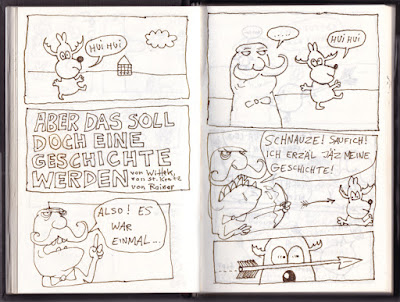 HUI HUI
ABER DAS SOLL
DOCH EINE
GESCHICHTE
WERDEN
von
von St.
von Rainer
ALSO! ES
WAR
EINMAL...
.....
HUI HUI
SCHNAUZE! SAUFICH!
ICH ERZÄL JÄZ MEINE
GESCHICHTE!